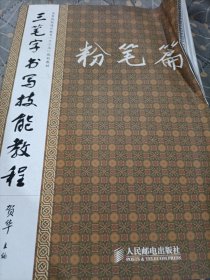 三笔字书写技能教程
粉笔篇
贺华 主编
人民邮电出版社
POSTS & TELECOM PRESS